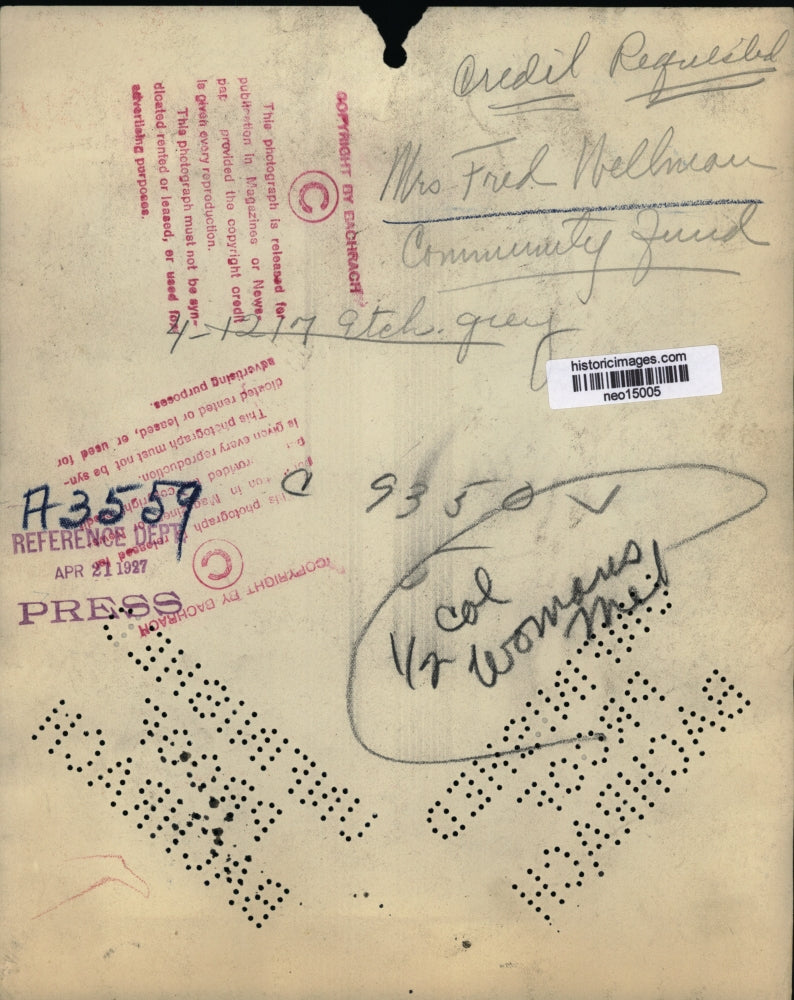 Credit Requested
Mrs Fred Wellman
Community Fund
4-1217 9tch. grey
COPYRIGHT BY BACHRACH
C
This photograph is released for
publication in Magazines or News-
provided the copyright credit
is given every reproduction.
This photograph must not be syn-
dicated rented or leased, or used for
advertising purposes.
historicimages.com
neo15005
COPYRIGHT BY BACHRACH
C
This photograph is released
in Magazines or
provided copyright
is given every reproduction.
This photograph must not be syn-
dicated rented or leased, or used for
advertising purposes.
A3559
REFERENCE DEPT.
APR 21 1927
PRESS
C 9350
1/2 col
Womans
BACHRACH
BACHRACH